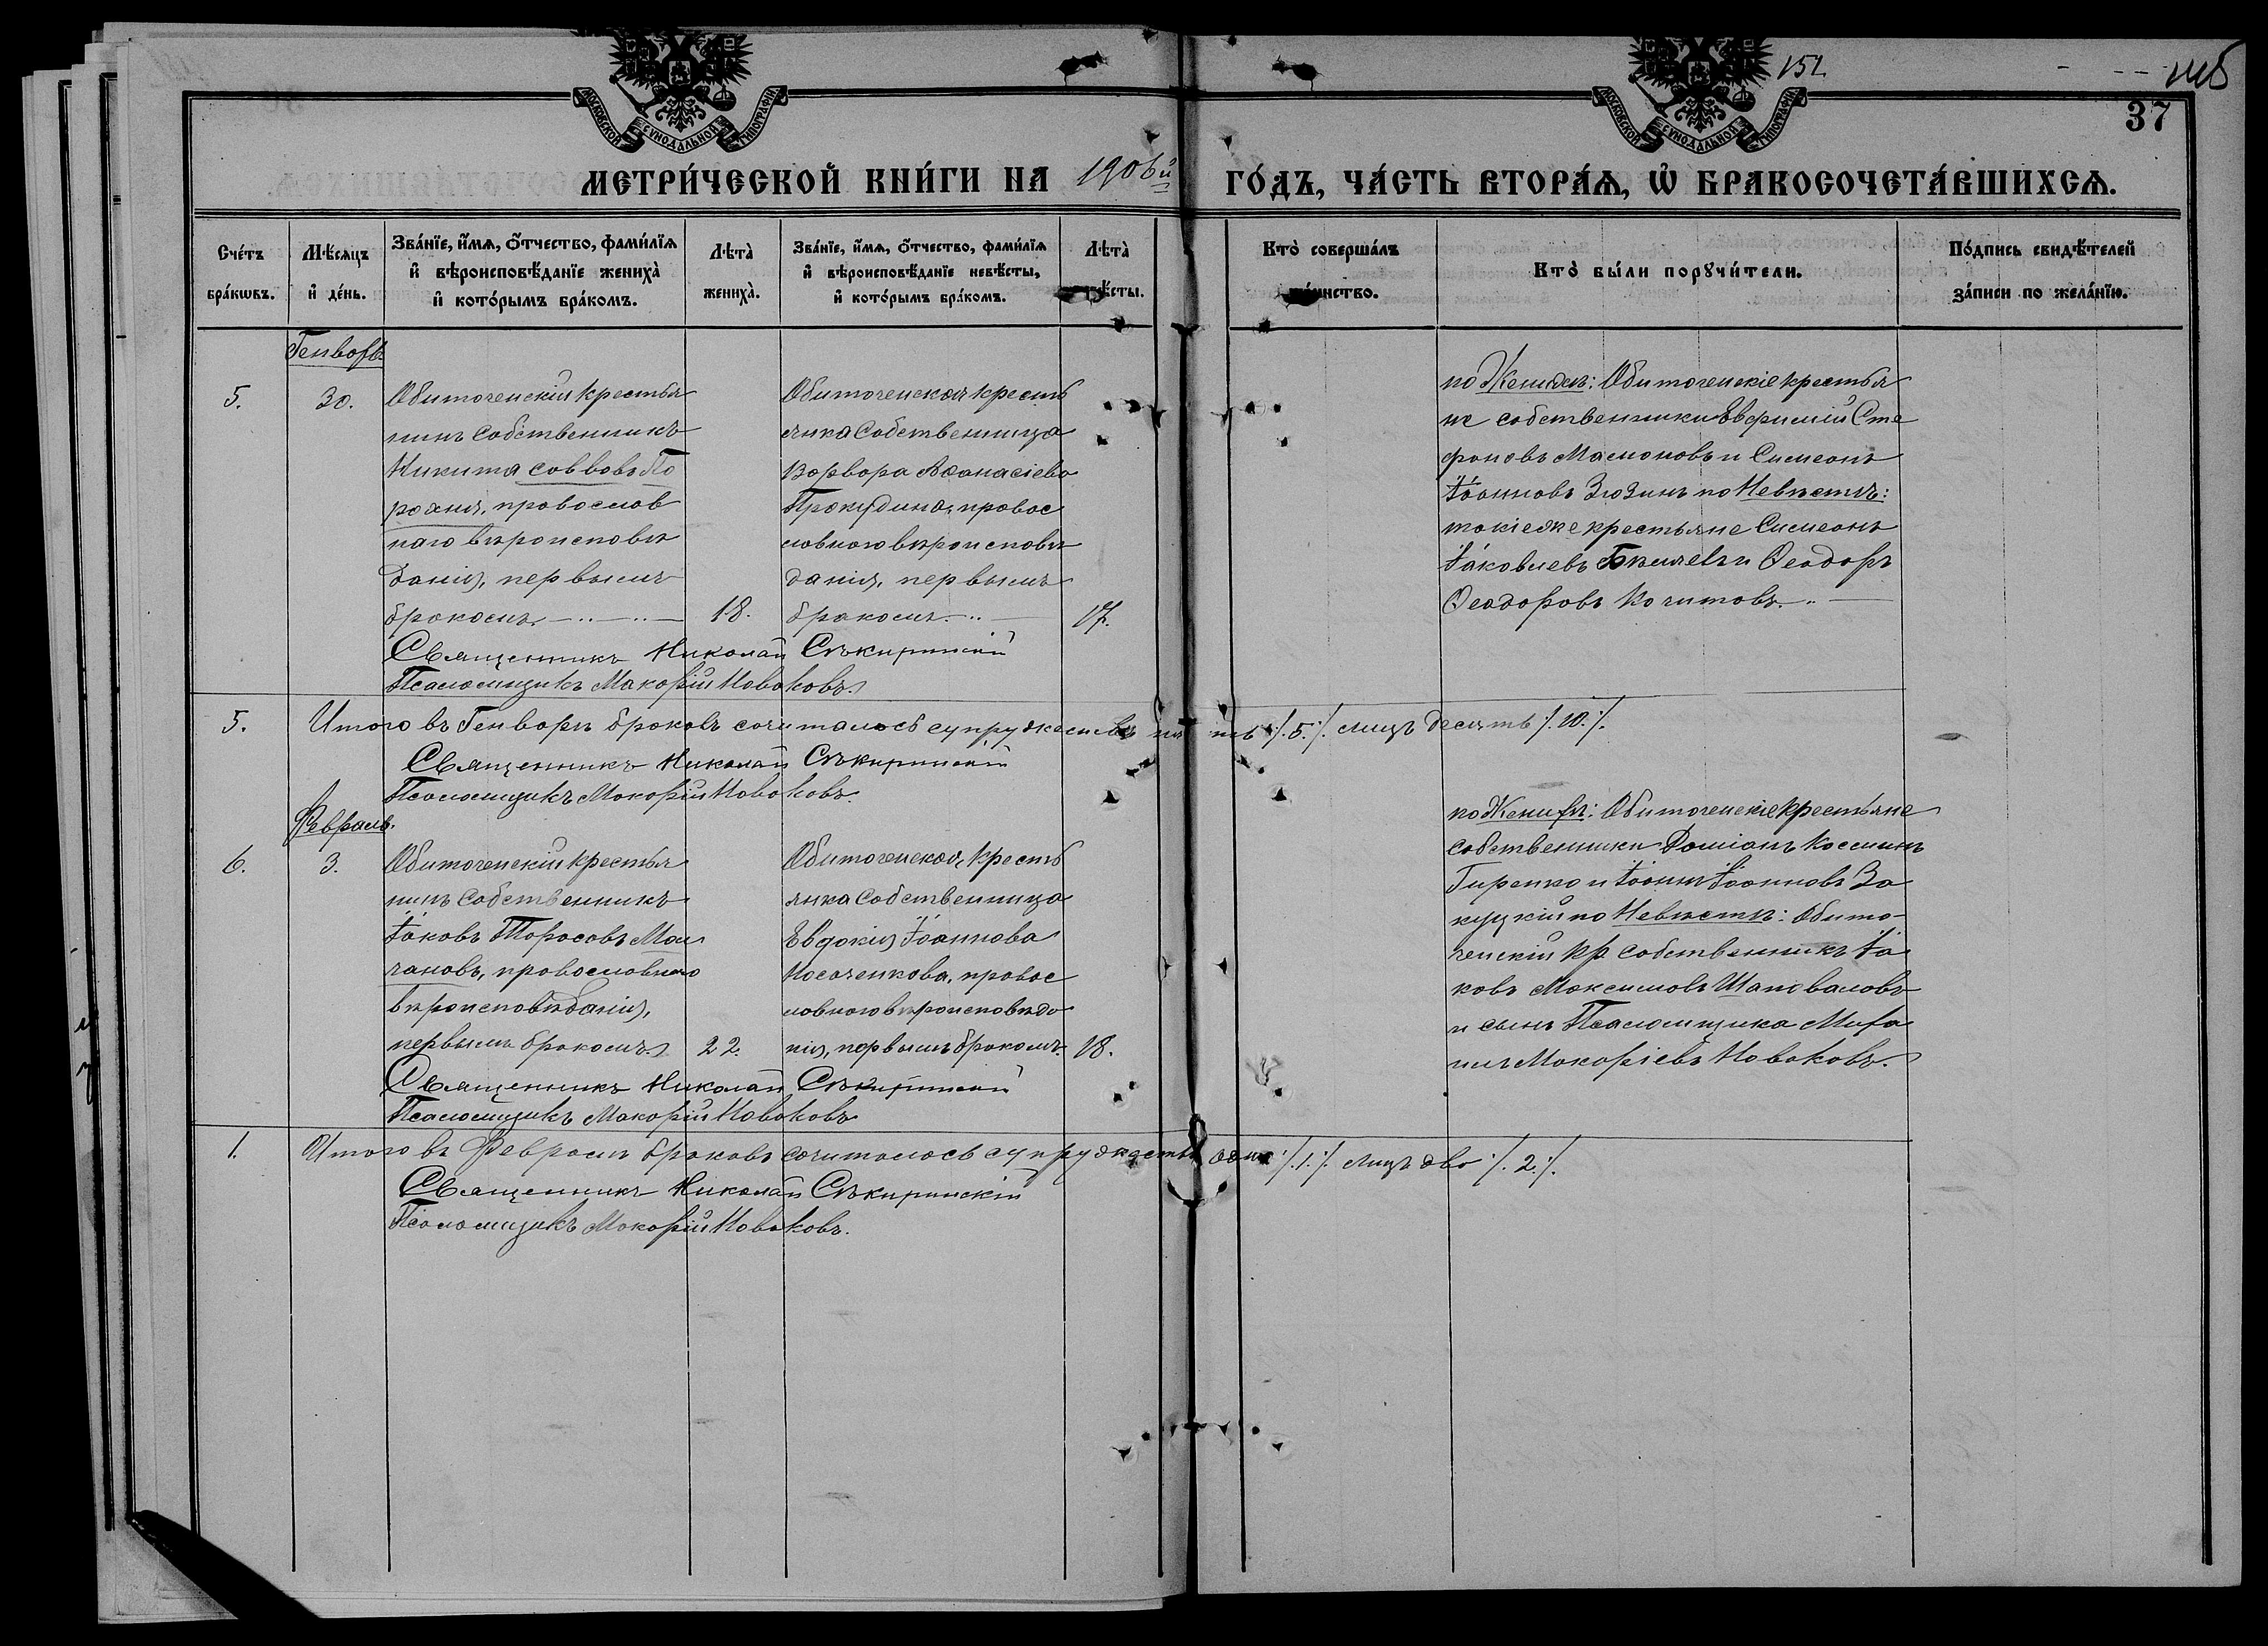 МОСКОВСКОЙ СУНОДАЛЬНОЙ ТИПОГРАФІИ
МОСКОВСКОЙ СУНОДАЛЬНОЙ ТИПОГРАФІИ
151.
37
МЕТРИ́ЧЕСКОЙ КНИ́ГИ НА 1906й ГО́ДЪ, ЧА́СТЬ ВТОРА́Ѧ, Ѡ҆ БРАКОСОЧЕТА́ВШИХСѦ.
Сче́тъ бра́кѡвъ.
Мѣ́сяцъ и҆ де́нь.
Зва́нїе, и҆́мѧ, ѻ҆́тчество, фами́лїѧ и҆ вѣроисповѣ́данїе жениха̀ и҆ кото́рымъ бра́комъ.
Лѣта̀ жениха̀.
Зва́нїе, и҆́мѧ, ѻ҆́тчество, фами́лїѧ и҆ вѣроисповѣ́данїе невѣ́сты, и҆ кото́рымъ бра́комъ.
Лѣта̀
Кто̀ соверша́лъ
Кто̀ бы́ли порꙋчи́тели.
По́дпись свидѣ́телей за́писи по жела́нїю.
Генварь
5.
30.
Обиточенскій крестья
нинъ собственникъ
Никита Саввовъ По
рохня, православ
наго вѣроисповѣ
данія, первымъ
бракомъ.
18.
Обиточенская кресть
янка собственница
Варвара Аѳанасіева
Прокудина, правос
лавного вѣроисповѣ
данія, первымъ
бракомъ.
17.
по Женихѣ: Обиточенскіе крестья
не собственники Евфимій Сте
фановъ Мамоновъ и Симеонъ
Іоанновъ Зюзинъ по Невѣстѣ:
такіеже крестьяне Симеонъ
Іаковлевъ и Ѳеодоръ
Ѳеодоровъ Кочитовъ.
Священникъ Николай Сѣкиринскій
Псаломщикъ Макорій Новаковъ.
5.
Итого въ Генварѣ браковъ сочиталось супружествъ пять /.5./. лицъ десять /.10./.
Священникъ Николай Сѣкиринскій
Псаломщикъ Макорій Новаковъ.
Февраль.
6.
3.
Обиточенскій крестья
нинъ собственникъ
Іаковъ Тарасовъ Мол
чановъ, православнаго
вѣроисповѣданія,
первымъ бракомъ.
22.
Обиточенская, кресть
янка собственница
Евдокія Іоаннова
Носаченкова, правос
лавного вѣроисповѣда
нія, первымъ бракомъ.
18.
по Женихѣ: Обиточенскіе крестьяне
собственники Даміанъ Косминъ
Гиренко и Іоаннъ Іоанновъ За
куцкій по Невѣстѣ: Обито-
ченскій кр собственникъ Іа
ковъ Максимовъ Шаповаловъ
и сынъ Псаломщика Миха
илъ Макоріевъ Новаковъ.
Священникъ Николай Сѣкиринскій
Псаломщикъ Макорій Новаковъ
1.
Итого въ Февралѣ браковъ сочиталось супружествъ одно /.1./. лицъ два /.2./.
Священникъ Николай Сѣкиринскій
Псаломщикъ Макорій Новаковъ.